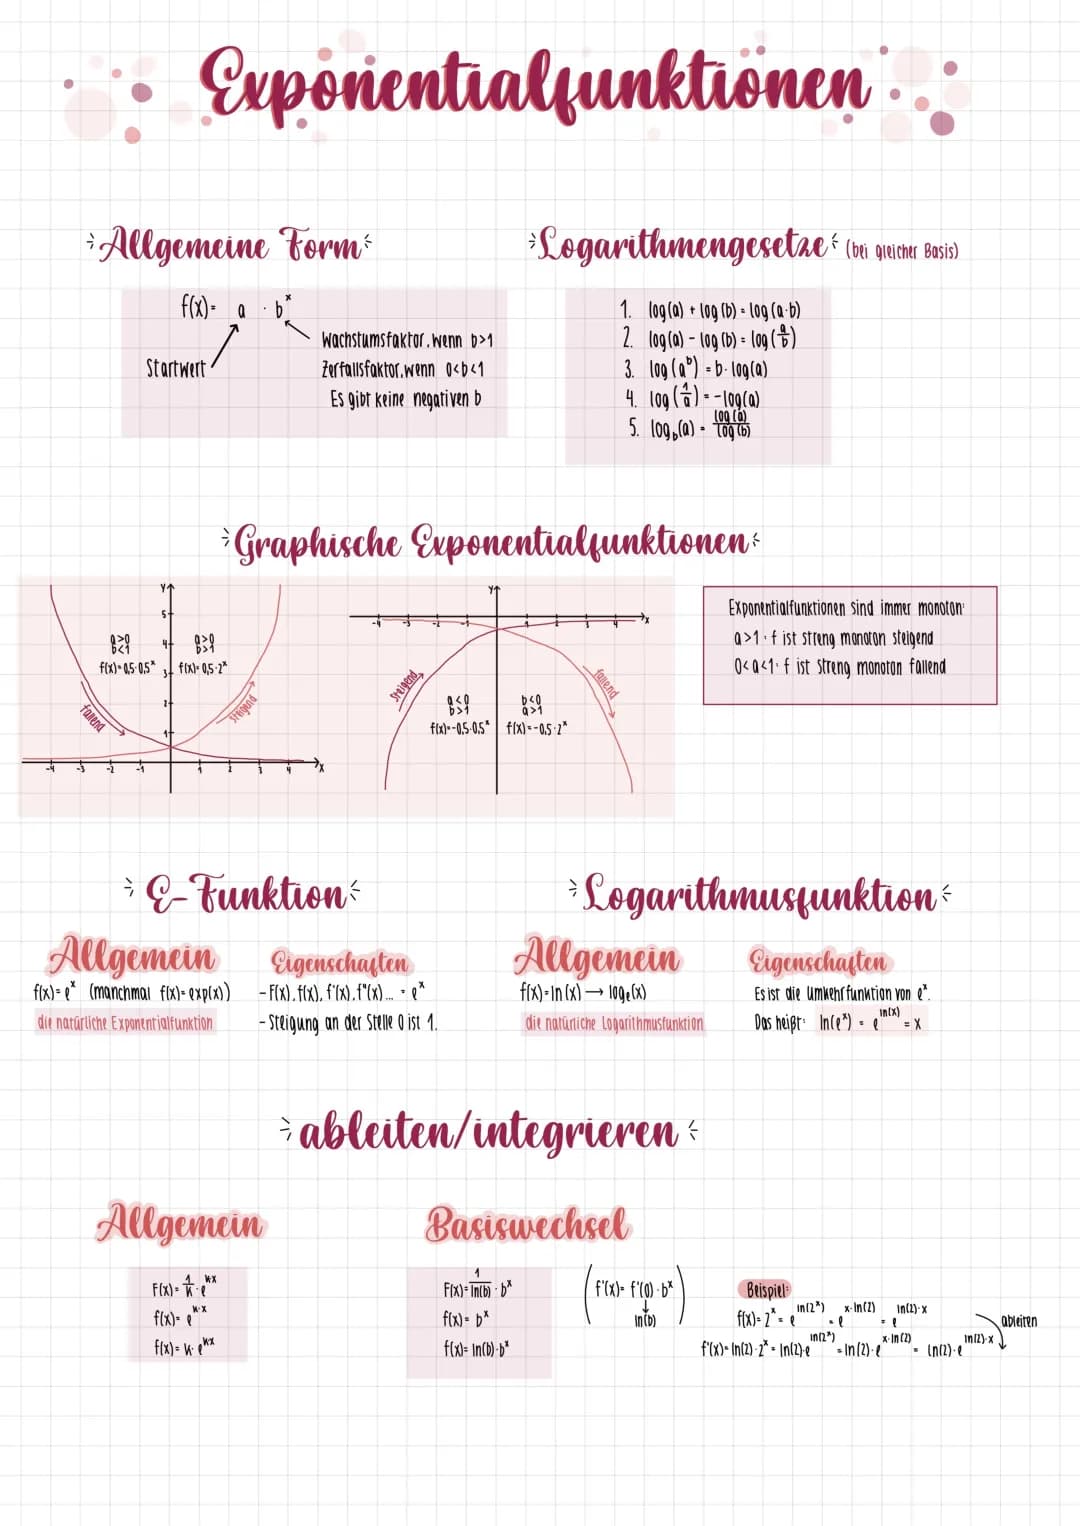 Exponentialfunktionen
Allgemeine Form
f(x)= a · b^x
Startwert
Wachstumsfaktor, wenn b>1
Zerfallsfaktor, wenn 0<b<1
Es gibt keine negativen b
Logarithmengesetze (bei gleicher Basis)
1. log(a) + log(b) = log(a·b)
2. log(a) - log(b) = log(a/b)
3. log(a^b) = b·log(a)
4. log(1/a) = -log(a)
5. log_b(a) = log(a)/log(b)
Graphische Exponentialfunktionen
y
5
4
3
2
1
-4 -3 -2 -1 1 2 3 4 x
a>0
b<1
f(x)=0,5·0,5^x
a>0
b>1
f(x)=0,5·2^x
fallend
steigend
y
-4 -3 -2 -1 1 2 3 4 x
steigend
fallend
a<0
b>1
f(x)=-0,5·0,5^x
b<0
a>1
f(x)=-0,5·2^x
Exponentialfunktionen sind immer monoton:
a>1: f ist streng monoton steigend
0<a<1: f ist streng monoton fallend
E-Funktion
Allgemein
f(x)=e^x (manchmal f(x)=exp(x))
die natürliche Exponentialfunktion
Eigenschaften
- F(x), f(x), f'(x), f"(x)... = e^x
- Steigung an der Stelle 0 ist 1.
Logarithmusfunktion
Allgemein
f(x)=ln(x) → log_e(x)
die natürliche Logarithmusfunktion
Eigenschaften
Es ist die Umkehrfunktion von e^x.
Das heißt: ln(e^x) = e^ln(x) = x
ableiten/integrieren
Allgemein
F(x)= 1/k · e^kx
f(x)= e^k·x
f(x)= k·e^kx
Basiswechsel
F(x)= 1/ln(b) · b^x
f(x)= b^x
f(x)= ln(b)·b^x
(f'(x)= f'(0)·b^x)
↓
ln(b)
Beispiel:
f(x)= 2^x = e^ln(2^x) = e^x·ln(2) = e^ln(2)·x
ableiten
f'(x)= ln(2)·2^x = ln(2)·e^ln(2^x) = ln(2)·e^x·ln(2) = ln(2)·e^ln(2)·x